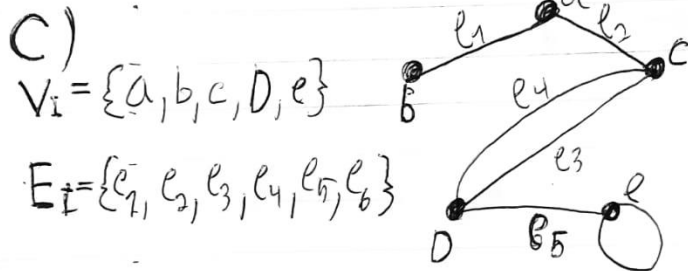 C)
V₁ = {a, b, c, D, e}
E₁ = {e₁, e₂, e₃, e₄, e₅, e₆}
e₁
e₂
C
B
e₄
e₃
D
e₅
e